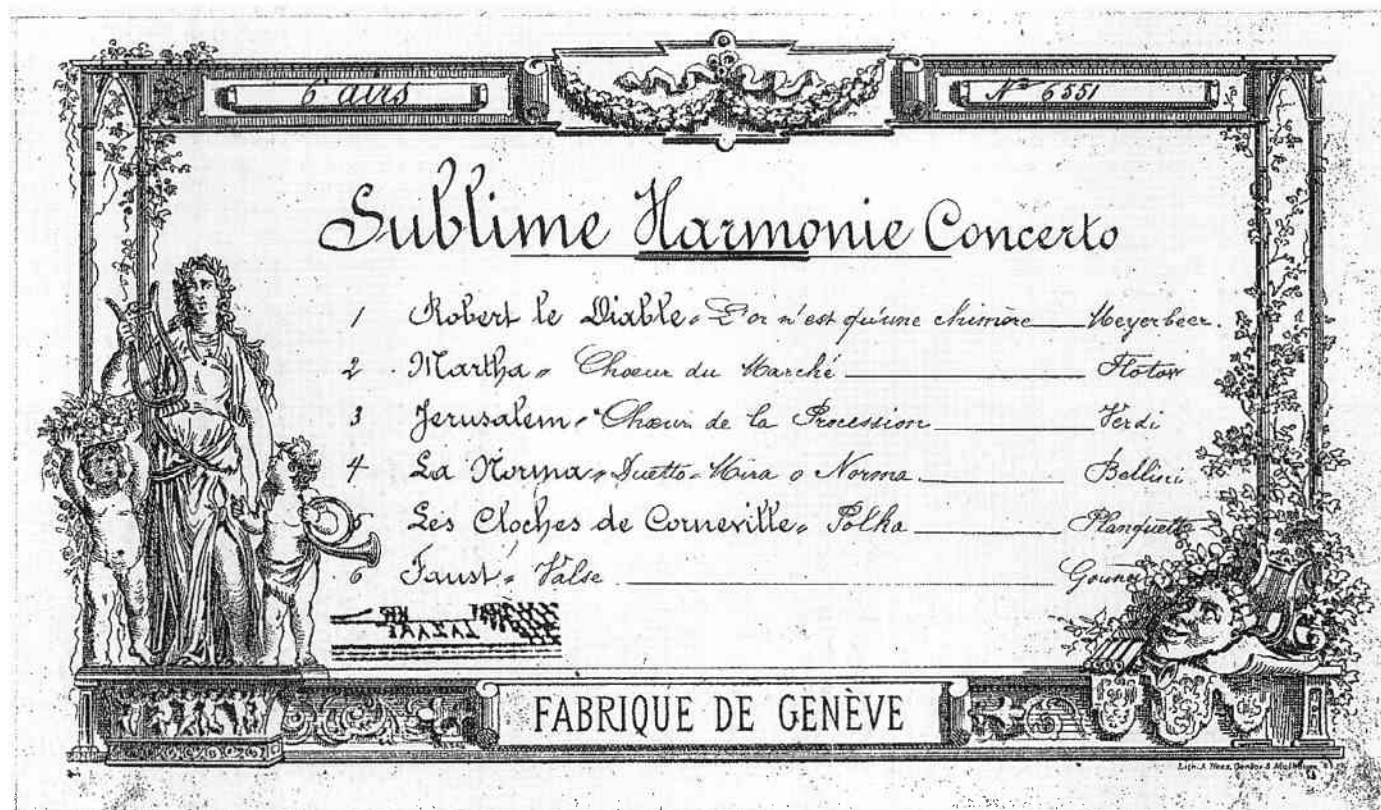 6 airs
No 6551
Sublime Harmonie Concerto
1 Robert le Diable " L'or n'est qu'une chimère Meyerbeer.
2 Martha " Choeur du Marché Flotow
3 Jerusalem " Chœur de la Procession Verdi
4 La Norma " Duetto - Mira o Norma Bellini
5 Les Cloches de Corneville " Polka Planquette
6 Faust " Valse Gounod
FABRIQUE DE GENÈVE
Lith. A. Genève &